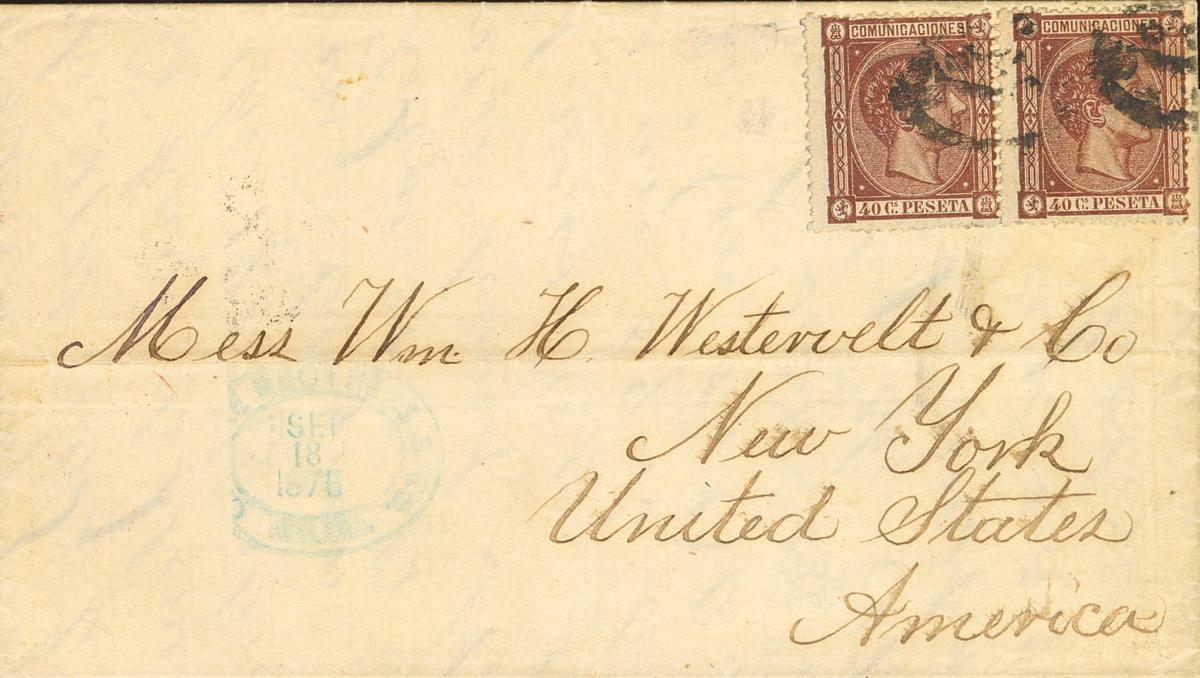 COMUNICACIONES COMUNICACIONES
40 Cs PESETA 40 Cs PESETA
Mess Wm. H. Westervelt & Co
New York
United States
America
SEP
18
1875